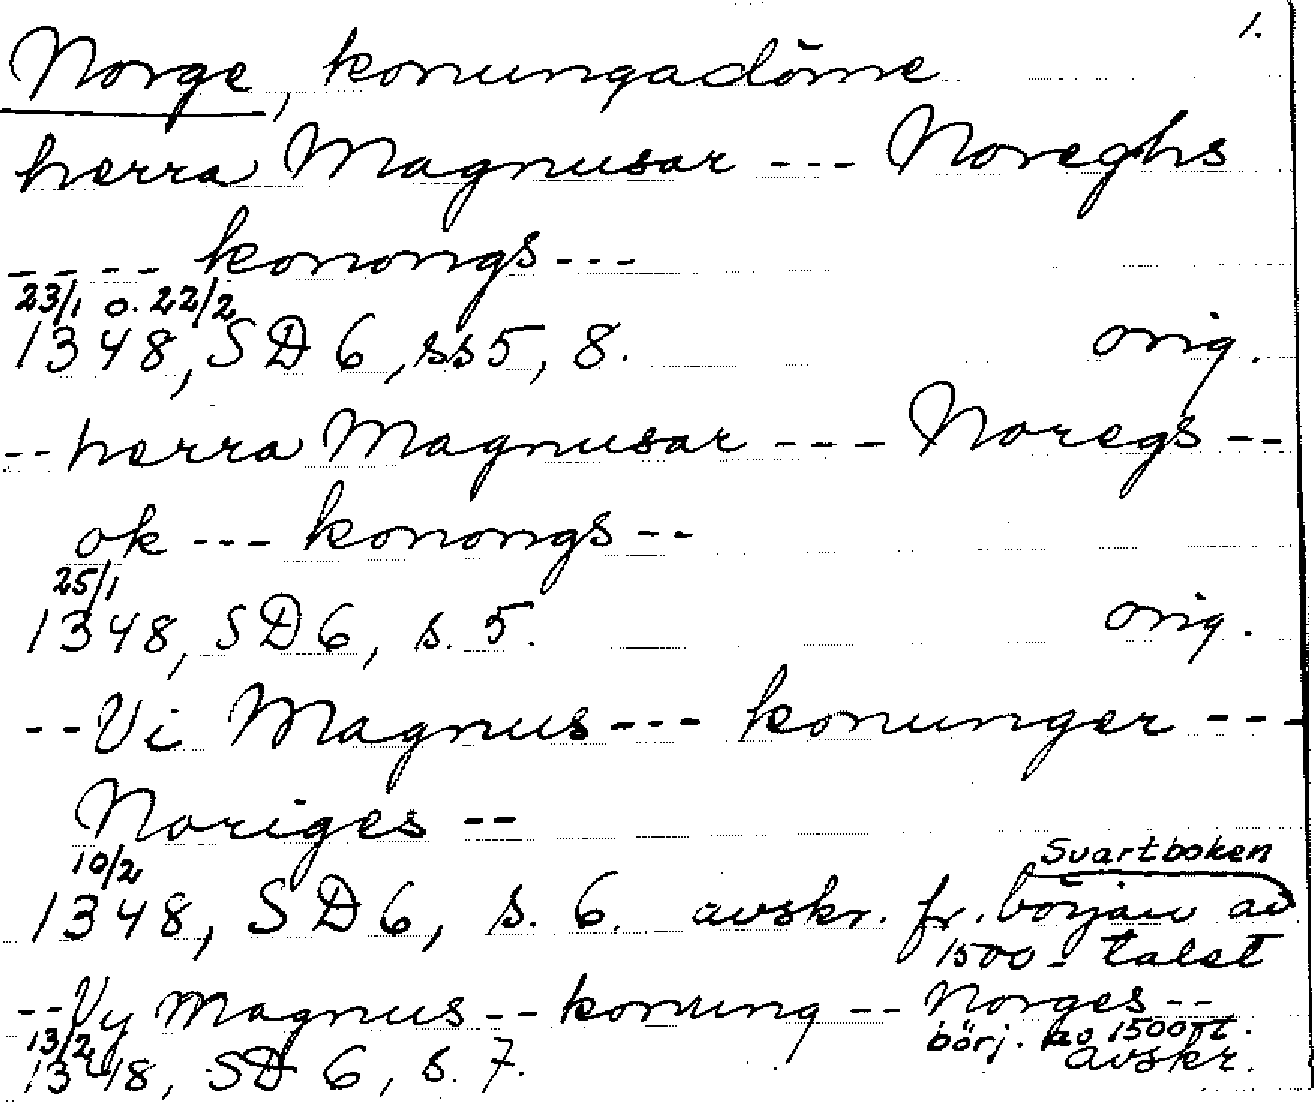 1.
Norge, konungadöme
herra Magnusar --- Noreghs
----- konongs---
23/1 o. 22/2
1348, SD 6, ss 5, 8. orig.
--herra Magnusar --- Noregs --
ok --- konongs--
25/1
1348, SD 6, s. 5. orig.
--Vi Magnus--- konunger ---
Noriges --
10/2 Svartboken
1348, SD 6, s. 6. avskr. fr. början av
1500-talet
--Vy Magnus -- konung -- Norges--
13/2 börj. av 1500 t.
1348, SD 6, s. 7. avskr.